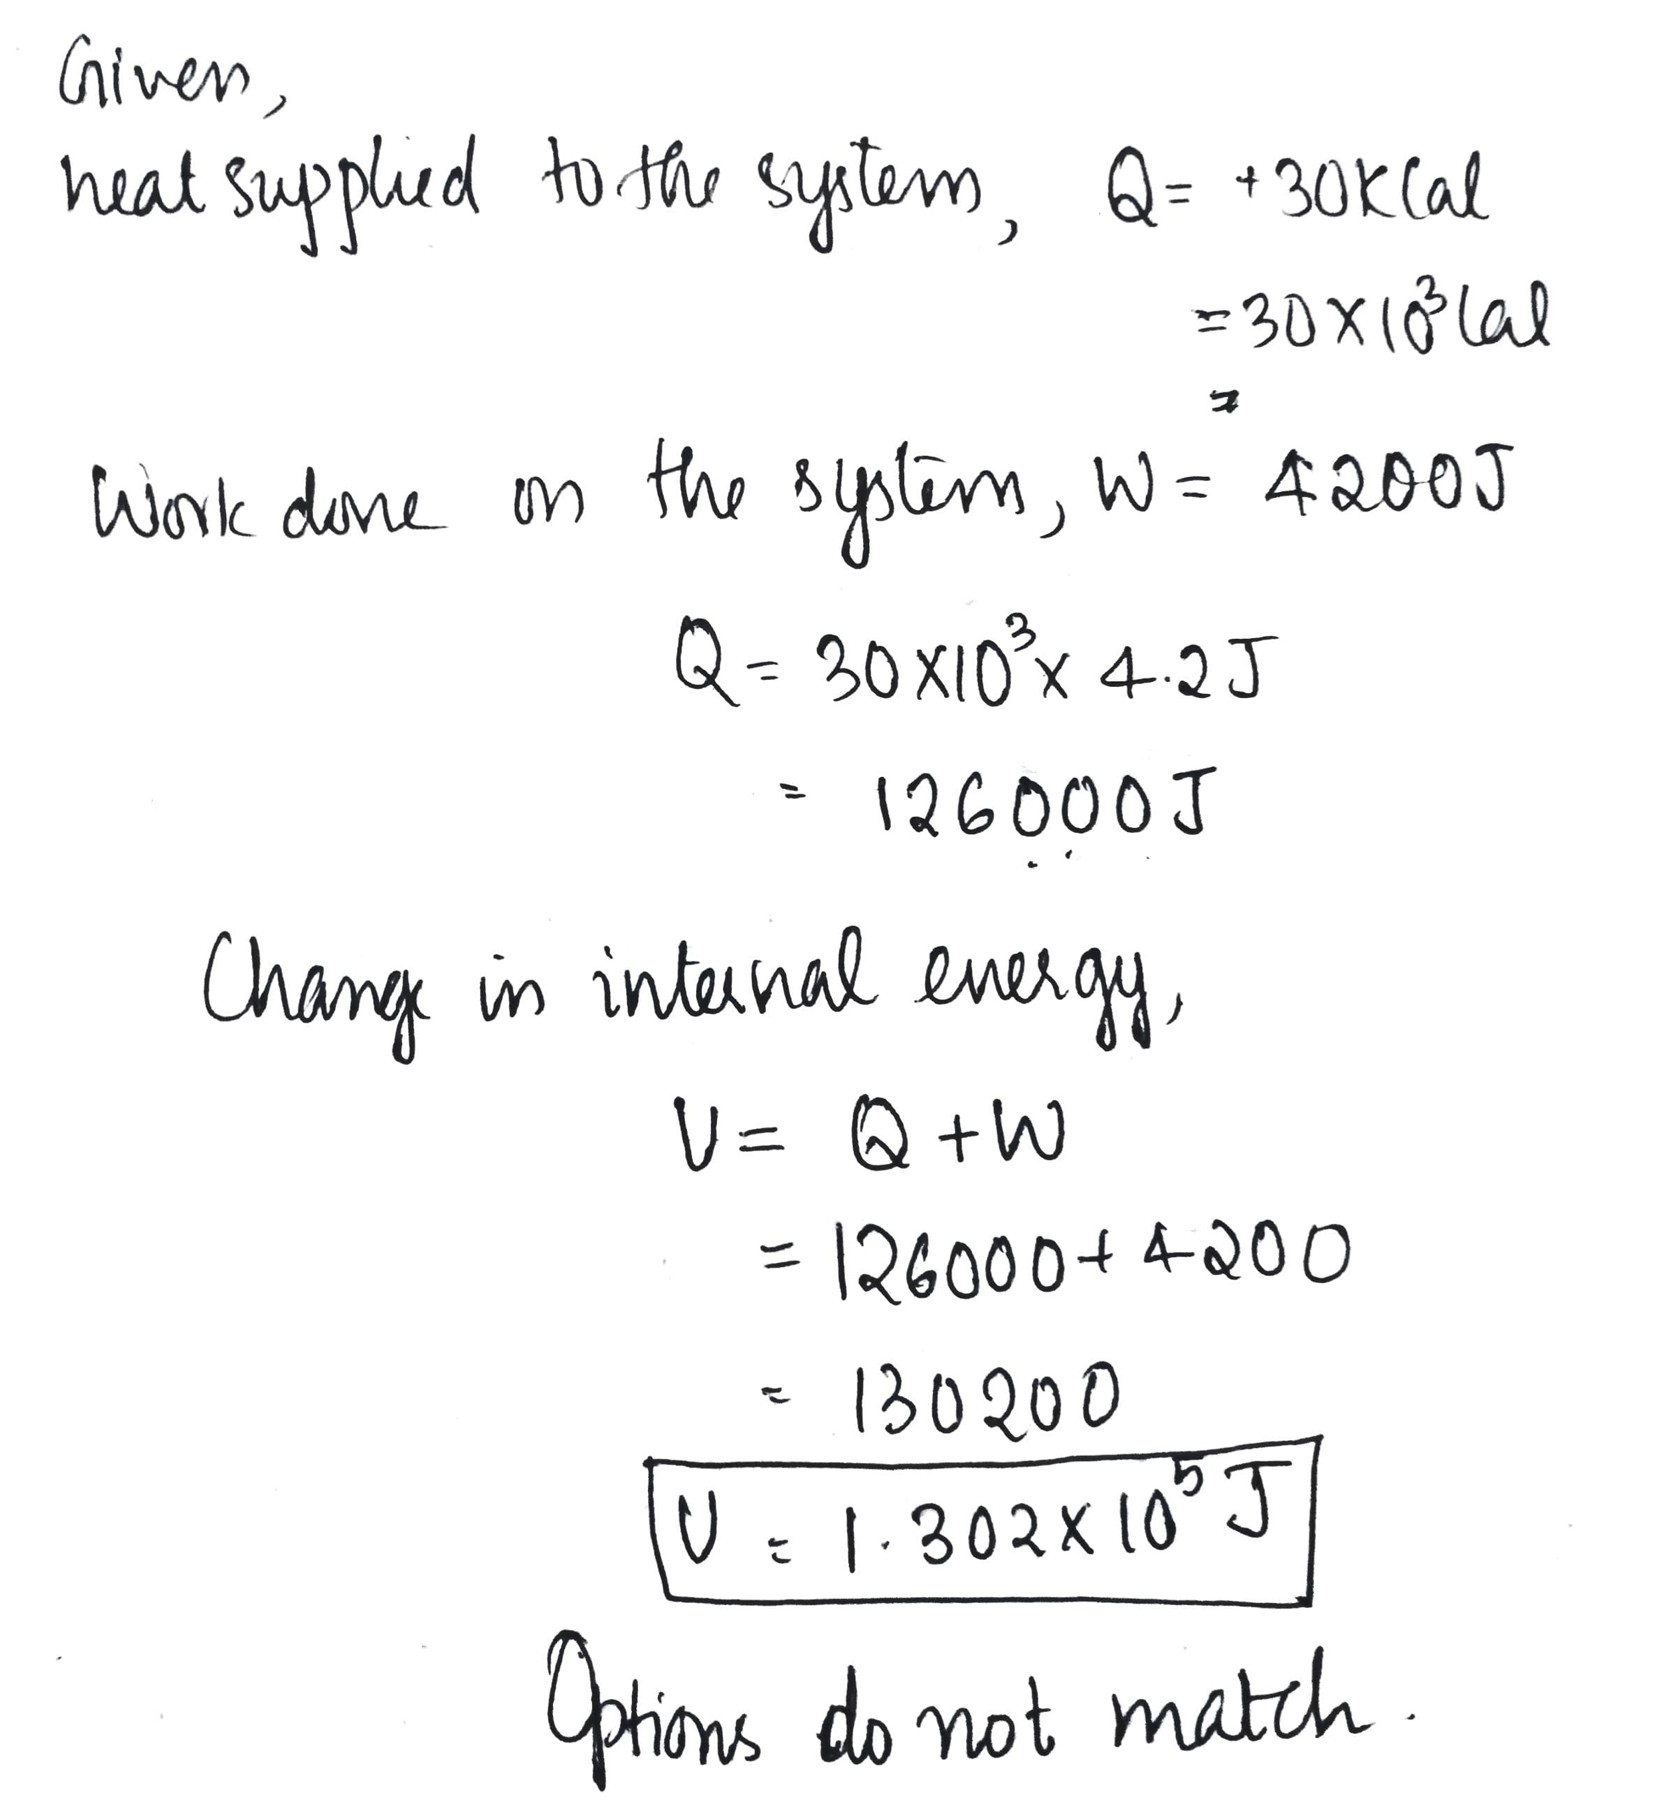 Given,
heat supplied to the system, Q = +30KCal
= 30 X 10³ Cal
=
Work done on the system, W = 4200J
Q = 30 X10³ x 4.2 J
= 126000 J
Change in internal energy,
U = Q + W
= 126000 + 4200
= 130200
U = 1.302 x 10⁵ J
Options do not match.